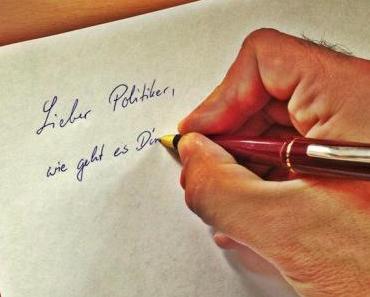 Lieber Politiker,
wie geht es Di